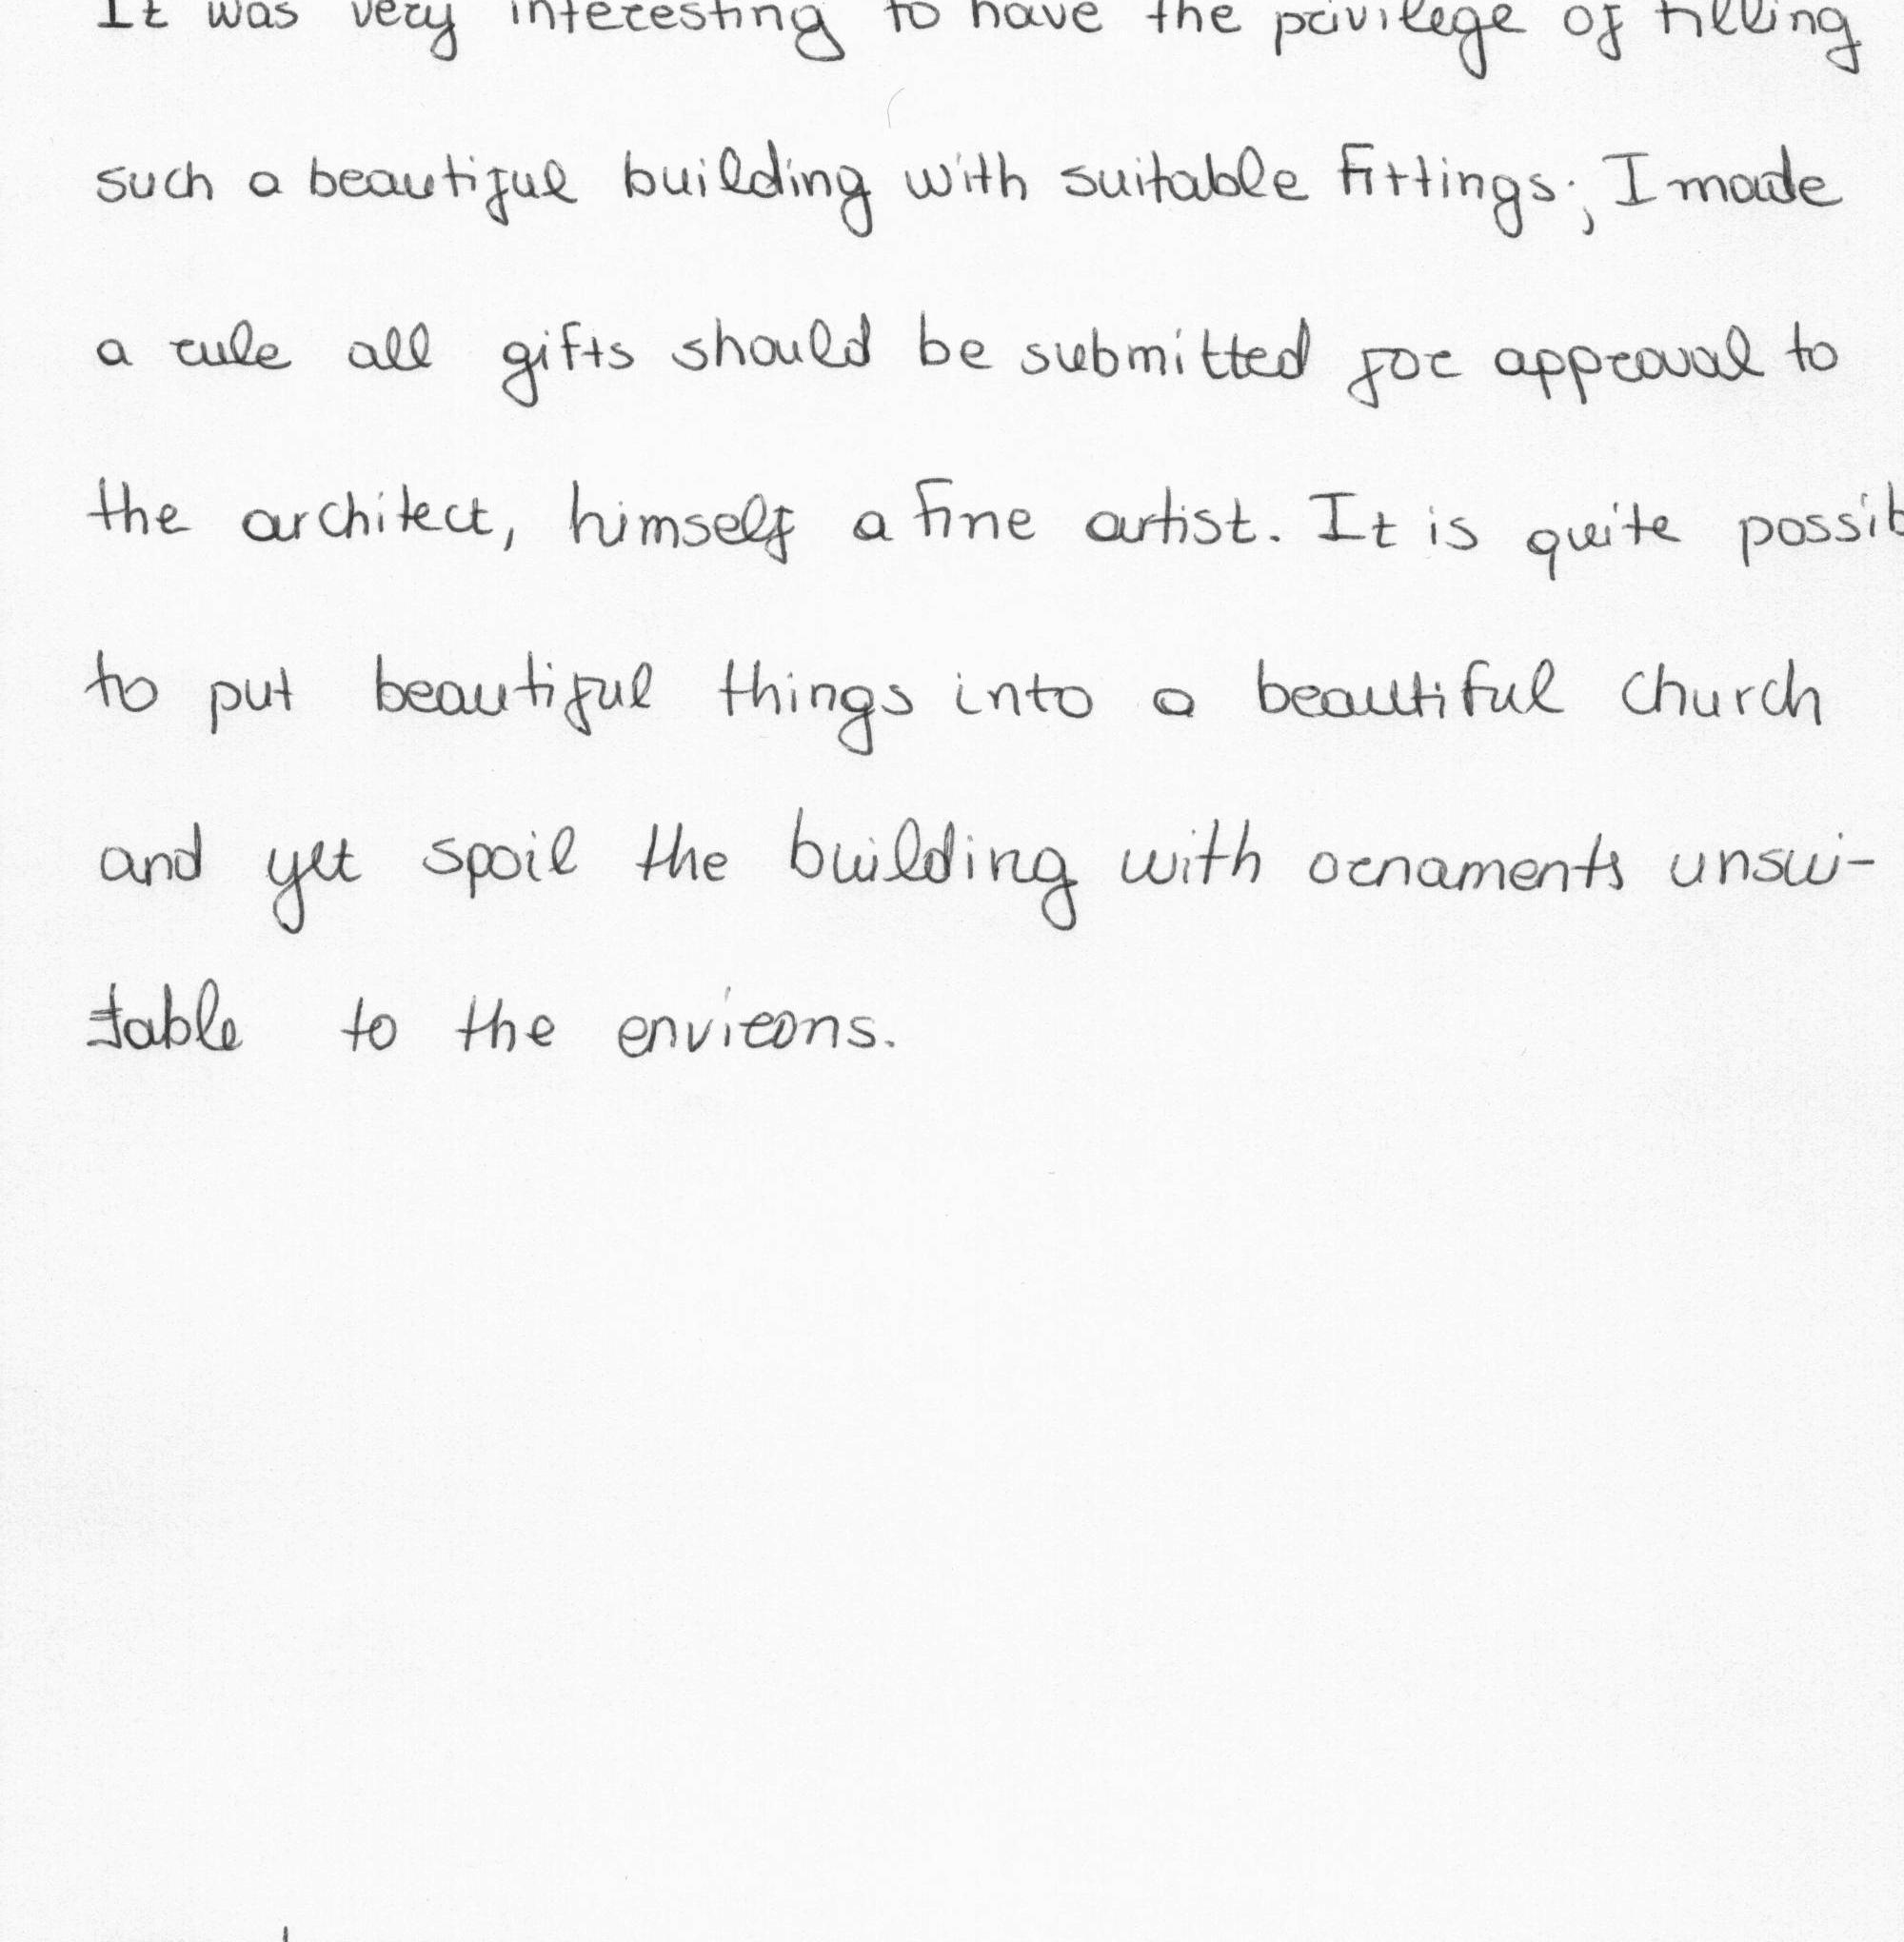 It was very interesting to have the privilege of filling
such a beautiful building with suitable fittings; I made
a rule all gifts should be submitted for approval to
the architect, himself a fine artist. It is quite possib
to put beautiful things into a beautiful church
and yet spoil the building with ornaments unsui-
table to the environs.